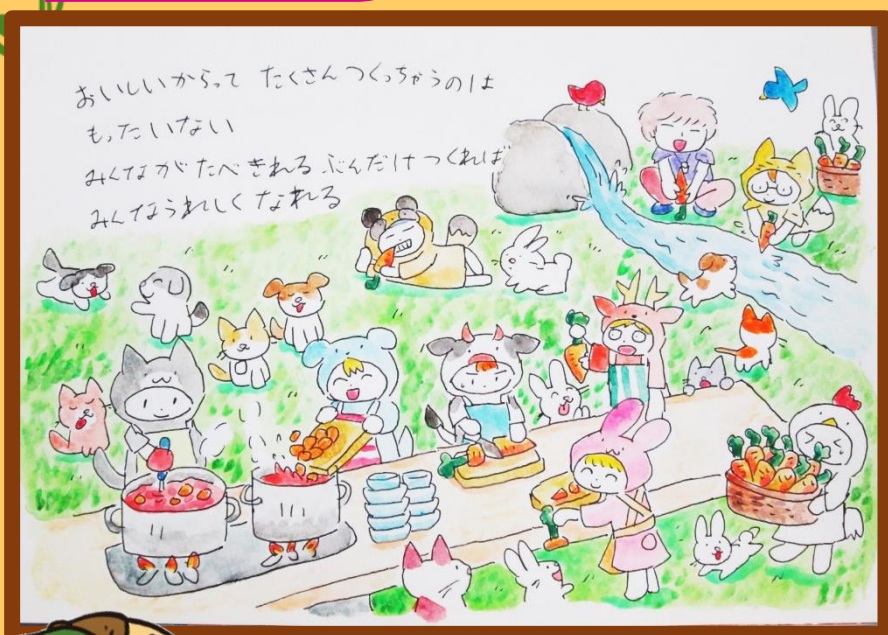 おいしいからって たくさんつくっちゃうのは
もったいない
みんながたべきれるぶんだけつくれば
みんなうれしくなれる